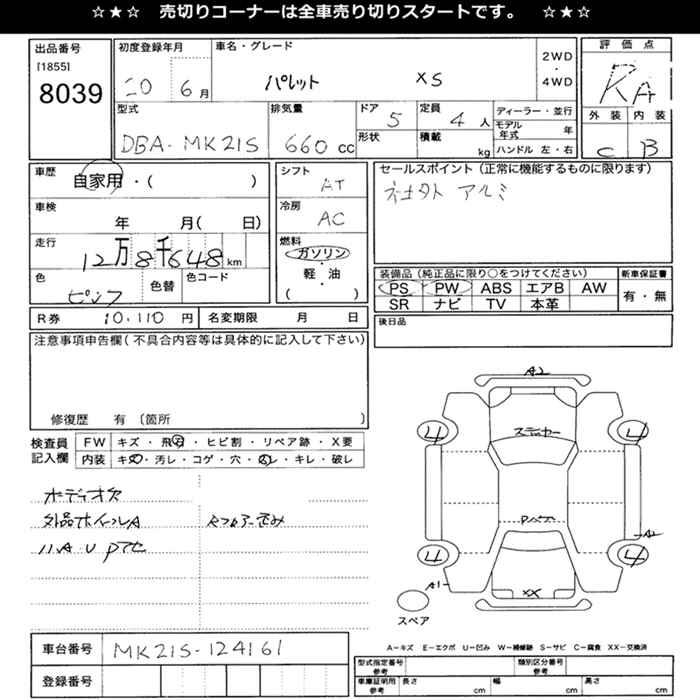 ☆★☆ 売切りコーナーは全車売り切りスタートです。 ☆★☆
出品番号
[1855]
8039
初度登録年月
20 6月
車名・グレード
パレット XS
2WD
・
4WD
評価点
RA
外装 内装
C B
型式
DBA-MK21S
排気量
660 cc
ドア 5
形状
定員 4人
積載 kg
ディーラー・並行
モデル年式 年
ハンドル 左・右
車歴
自家用・( )
車検
年 月( 日)
走行
12万8千648km
色
ピンク
色替
色コード
シフト
AT
冷房
AC
燃料
ガソリン
・
軽・油
( )
セールスポイント(正常に機能するものに限ります)
アルミ
装備品(純正品に限り○をつけてください)
PS PW ABS エアB AW
SR ナビ TV 本革
新車保証書
有・無
R券 10,110円
名変期限 月 日
後日品
注意事項申告欄(不具合内容等は具体的に記入して下さい)
修復歴 有 〔箇所 〕
検査員
記入欄
FW キズ・飛石・ヒビ割・リペア跡・X要
内装 キズ・汚レ・コゲ・穴・スレ・キレ・破レ
ボディオス
外品ホイールA
A2
ステッカー
4 4
A2
4 4
A1
XX
スペア
車台番号 MK21S-124161
登録番号
A−キズ E−エクボ U−凹み W−補修跡 S−サビ C−腐食 XX−交換済
型式指定番号
参考
類別区分番号
参考
車庫証明用
参考
長さ cm 幅 cm 高さ cm